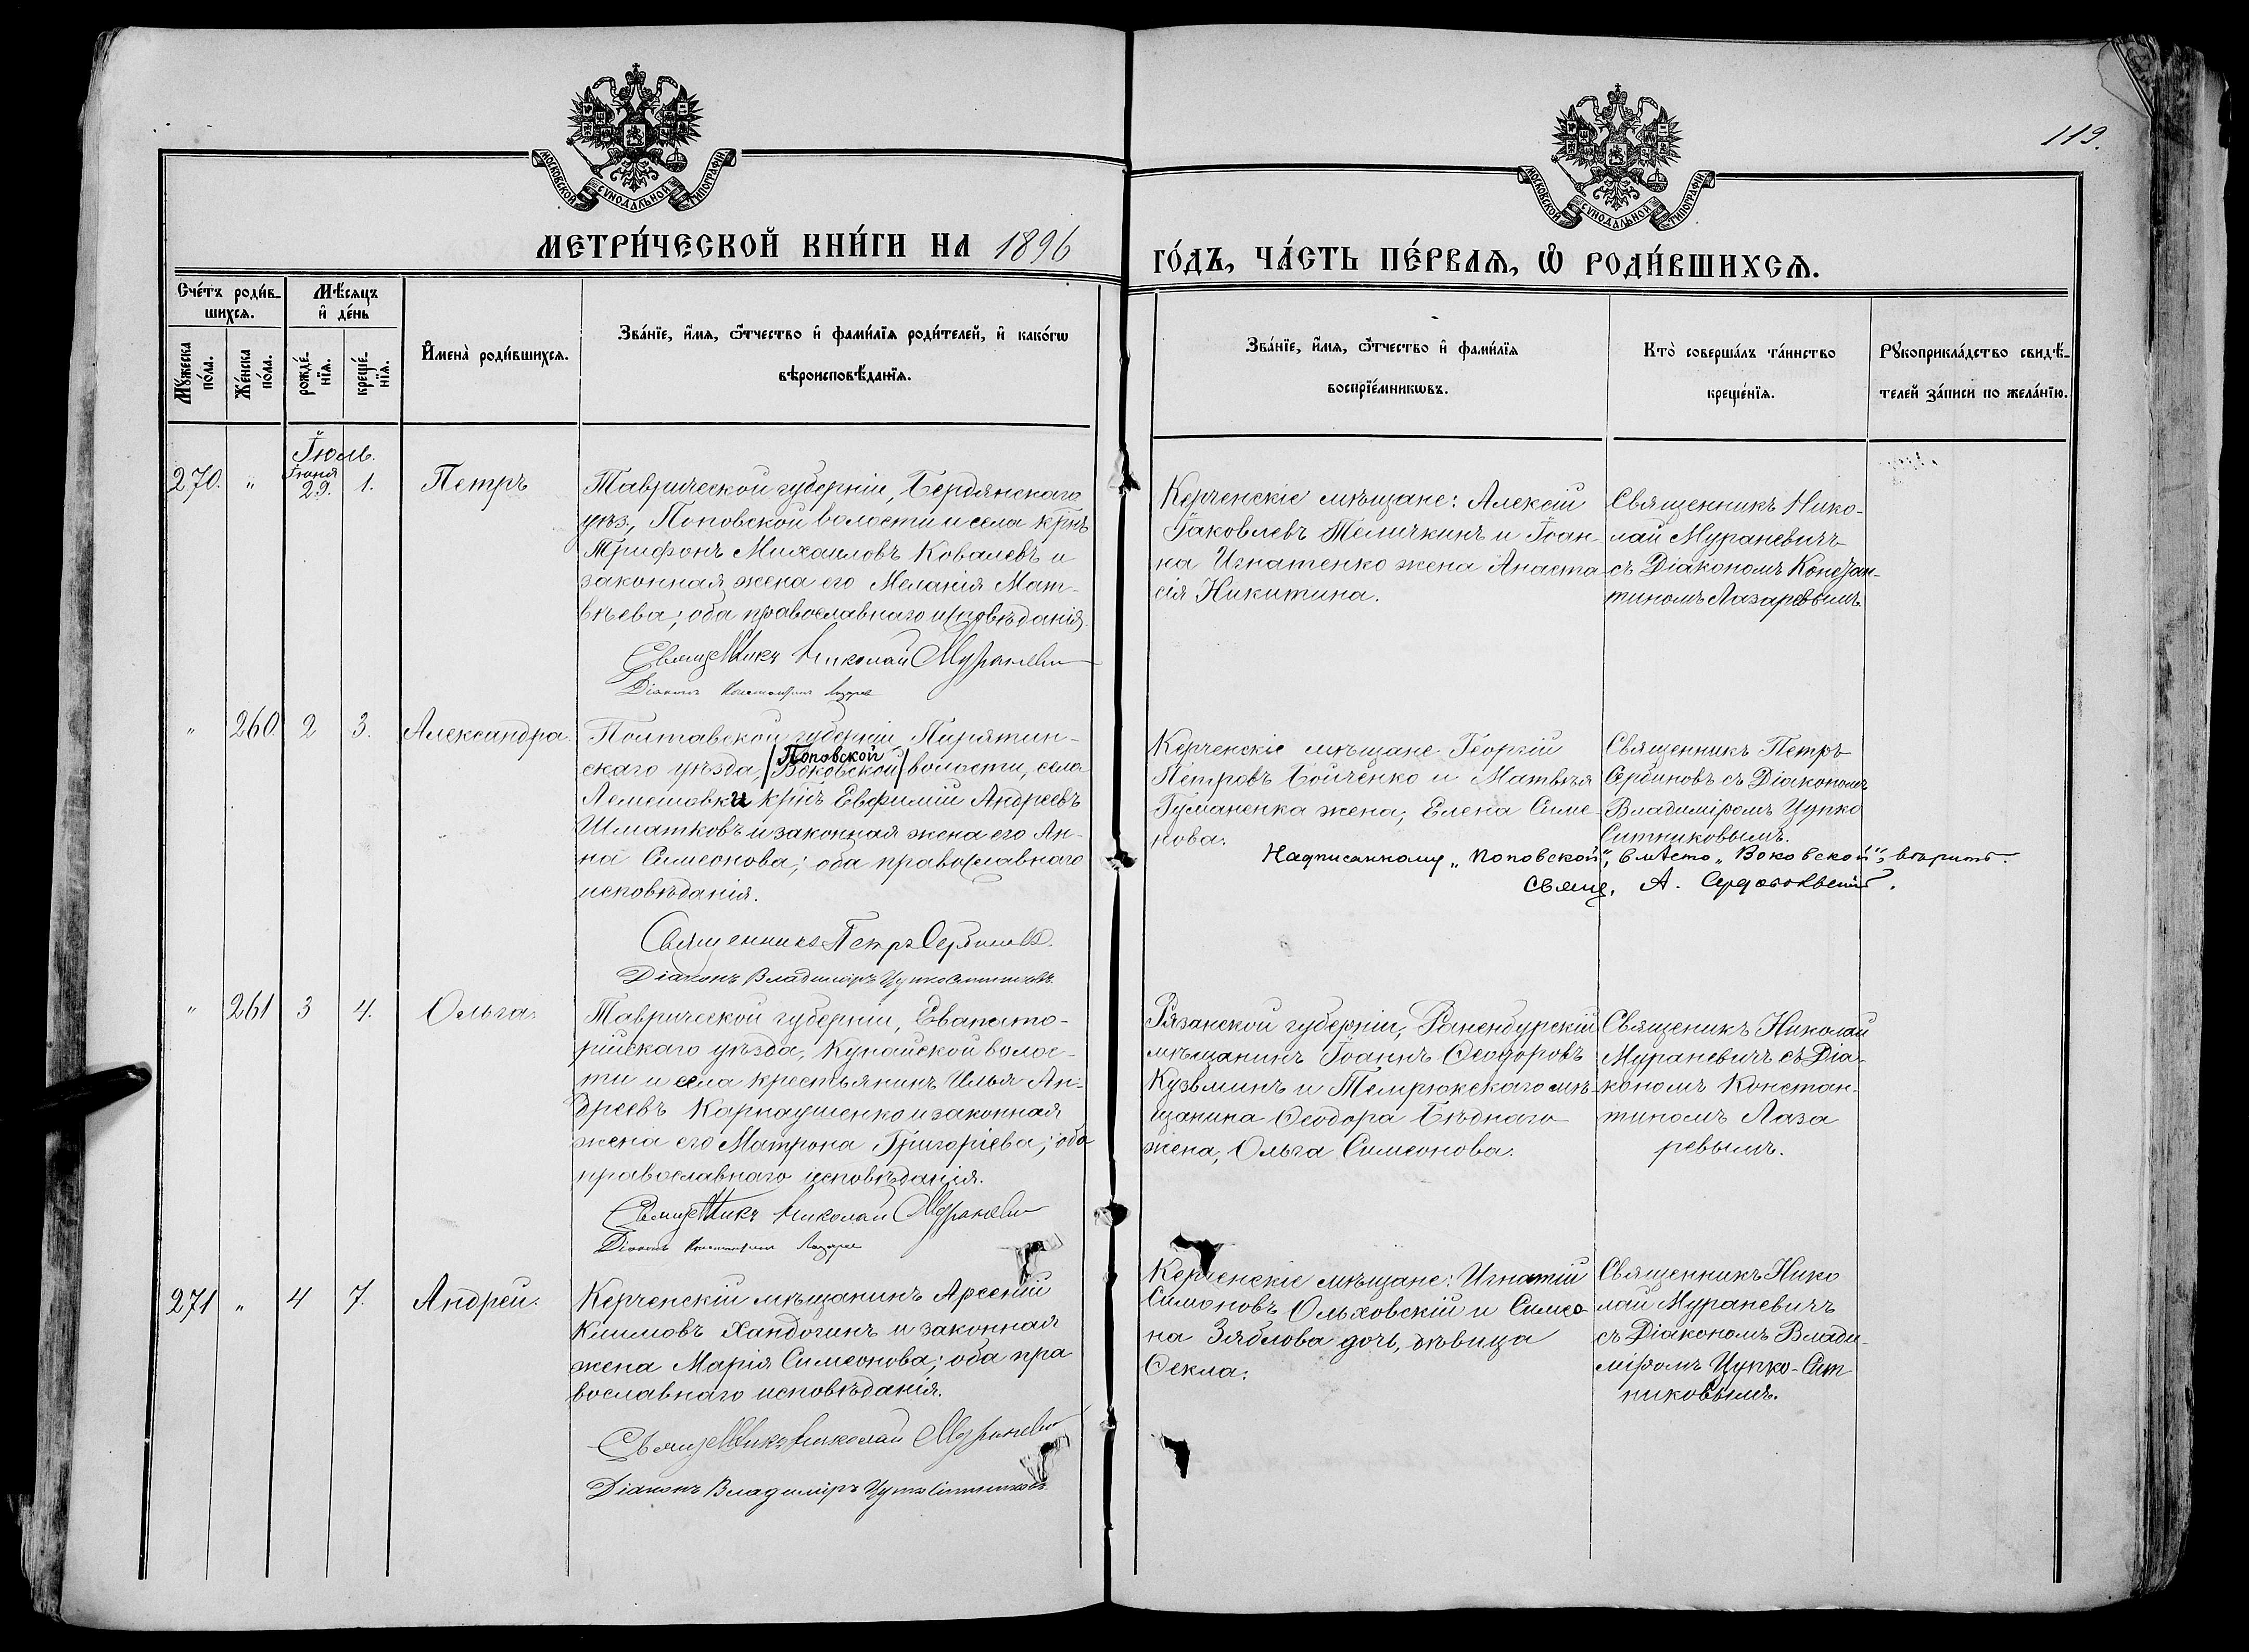 119.
МОСКОВСКОЙ СѴНОДАЛЬНОЙ ТИПОГРАФІИ
МОСКОВСКОЙ СѴНОДАЛЬНОЙ ТИПОГРАФІИ
МЕТРИ́ЧЕСКОЙ КНИ́ГИ НА 1896
ГО́ДЪ, ЧА́СТЬ ПЕ́РВАѦ, Ѡ҆ РОДИ́ВШИХСѦ.
Сче́тъ роди́в-
шихсѧ.
Мꙋжеска по́ла.
Же́нска по́ла.
Мѣ́сѧцъ
и҆ де́нь
рожде́-нїѧ.
креще́-нїѧ.
И҆мена̀ роди́вшихсѧ.
Зва́нїе, и҆́мѧ, ѻ҆́тчество и҆ фами́лїѧ роди́телей, и҆ како́гѡ
вѣроисповѣ́данїѧ.
Зва́нїе, и҆́мѧ, ѻ҆́тчество и҆ фами́лїѧ
воспрїе́мникѡвъ.
Кто̀ соверша́лъ та́инство
креще́нїѧ.
Рꙋкоприкла́дство свидѣ́-
телей за́писи по жела́нїю.
Іюль.
270. " Іюня 29. 1. Петръ
Таврической губерніи, Бердянскаго
уѣз., Поповской волости и села крнъ
Трифонъ Михаиловъ Ковалевъ и
законная жена его Меланія Мат-
вѣева; оба православнаго исповѣданія.
Священникъ Николай Мураневичъ
Діаконъ Константинъ Лазаревъ
Керченскіе мѣщане: Алексій
Іаковлевъ Теличкинъ и Іоан-
на Игнатенко жена Анаста-
сія Никитина.
Священникъ Нико-
лай Мураневичъ
съ Діакономъ Констан-
тиномъ Лазаревымъ.
" 260 2 3. Александра.
Полтавской губерніи Пирятин-
скаго уѣзда, Поповской
Воковской волости, села
Лемешовки крнъ Евфимій Андреевъ
Шматковъ и законная жена его Ан-
на Симеонова; оба православнаго
исповѣданія.
Священникъ Петръ Сербиновъ.
Діаконъ Владиміръ Цупко Ситниковъ.
Керченскіе мѣщане Георгій
Петровъ Бойченко и Матвѣя
Гуманенка жена, Елена Симе-
нова.
Священникъ Петръ
Сербиновъ съ Діакономъ
Владиміромъ Цупко
Ситниковымъ.
Надписанному „Поповской", вмѣсто „Воковской", вѣрить.
Свящ. А.
" 261 3 4. Ольга.
Таврической губерніи, Евпато-
рійскаго уѣзда, Кунанской волос-
ти и села крестьянинъ Илья Ан-
дреевъ Карпаушенко и законная
жена его Матрона Григоріева; оба
православнаго исповѣданія.
Священникъ Николай Мураневичъ
Діаконъ Константинъ Лазаревъ
Рязанской губерніи, Раненбурскій
мѣщанинъ Іоаннъ Ѳеодоровъ
Кузьминъ и Темрюкскаго мѣ-
щанина Ѳеодора Бѣднаго
жена, Ольга Симеонова.
Священикъ Николай
Мураневичъ съ Діа-
кономъ Констан-
тиномъ Лаза
ревымъ.
271 " 4 7. Андрей.
Керченскій мѣщанинъ Арсеній
Климовъ Хандогинъ и законная
жена Марія Симеонова; оба пра
вославнаго исповѣданія.
Священникъ Николай Мураневичъ
Діаконъ Владиміръ Цупко Ситниковъ.
Керченскіе мѣщане: Игнатій
Симоновъ Ольховскій и Симео-
на Зяблова дочь, дѣвица
Ѳекла.
Священникъ Нико
лай Мураневичъ
съ Діакономъ Влади-
міромъ Цупко-Сит
никовымъ.